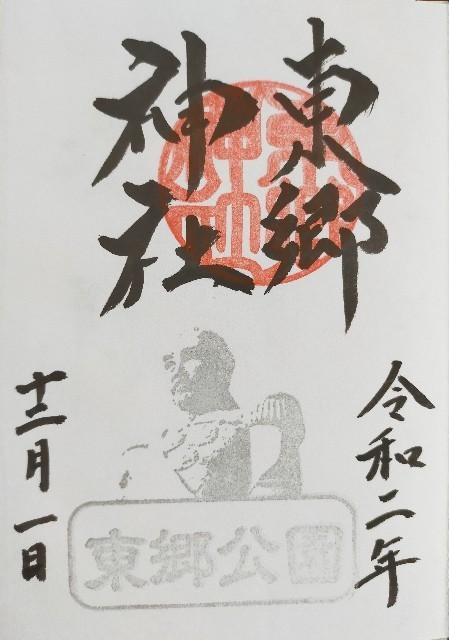 東郷
神社
令和二年
十二月一日
東郷公園